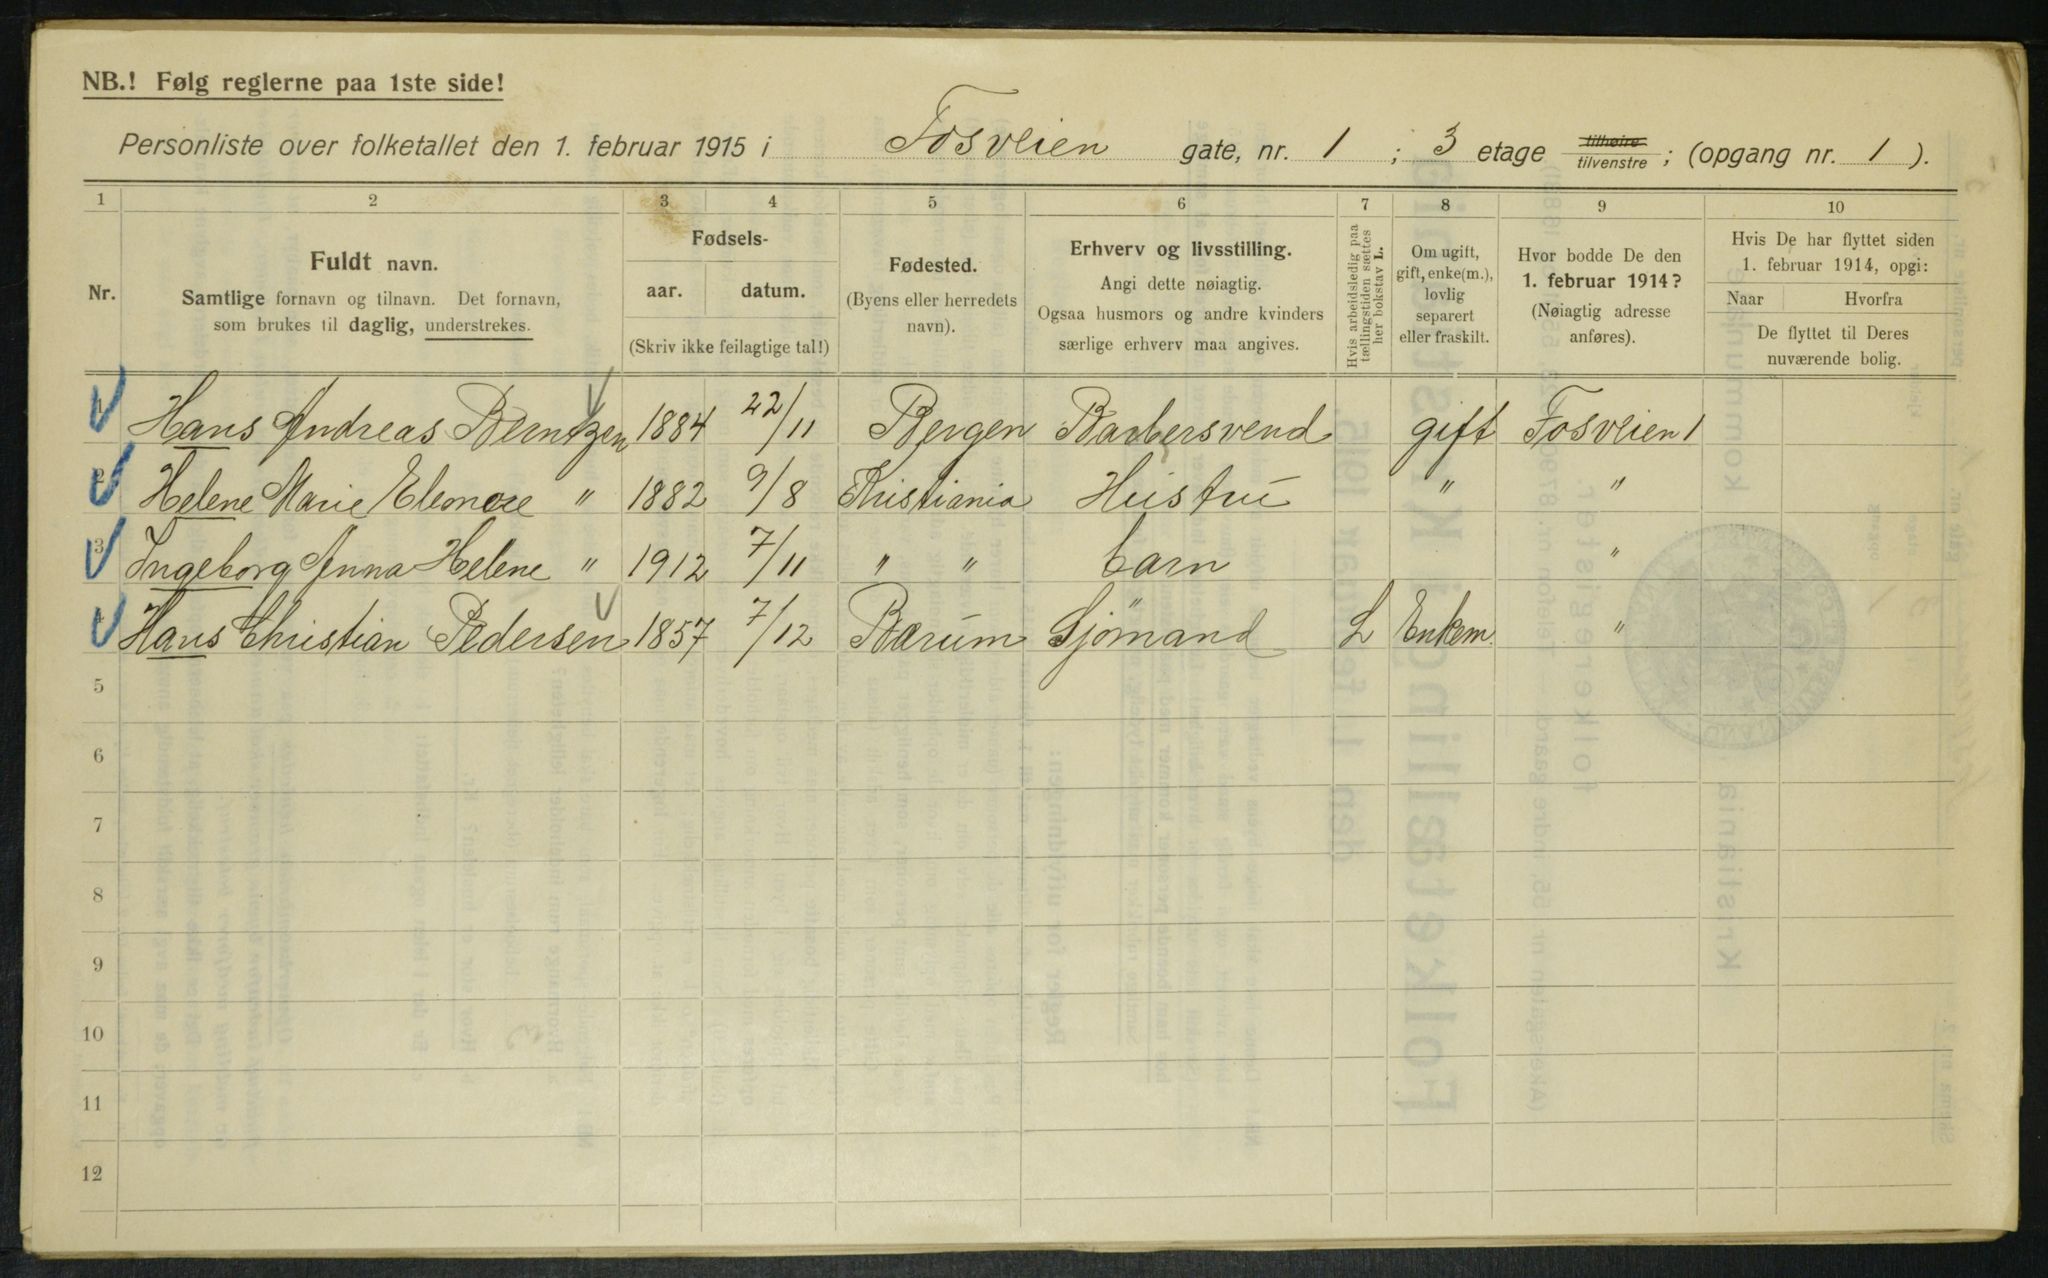 NB.! Følg reglerne paa 1ste side!
Personliste over folketallet den 1. februar 1915 i Fosveien gate, nr. 1 ; 3 etage tilhøire tilvenstre ; (opgang nr. 1 ).
1 2 3 4 5 6 7 8 9 10
Nr.
Fuldt navn.
Samtlige fornavn og tilnavn. Det fornavn,
som brukes til daglig, understrekes.
Fødsels-
aar. datum.
(Skriv ikke feilagtige tal!)
Fødested.
(Byens eller herredets
navn).
Erhverv og livsstilling.
Angi dette nøiagtig.
Ogsaa husmors og andre kvinders
særlige erhverv maa angives.
Hvis arbeidsledig paa
tællingstiden sættes
her bokstav L.
Om ugift,
gift, enke(m.),
lovlig
separert
eller fraskilt.
Hvor bodde De den
1. februar 1914?
(Nøiagtig adresse
anføres).
Hvis De har flyttet siden
1. februar 1914, opgi:
Naar Hvorfra
De flyttet til Deres
nuværende bolig.
1 Hans Andreas Berntzen 1884 22/11 Bergen Barbersvend gift Fosveien 1
2 Helene Marie Eleonore " 1882 9/8 Kristiania Hustru " "
3 Ingeborg Anna Helene " 1912 7/11 " " barn "
4 Hans Christian Pedersen 1857 7/12 Bærum Sjömand L Enkem. "
5
6
7
8
9
10
11
12